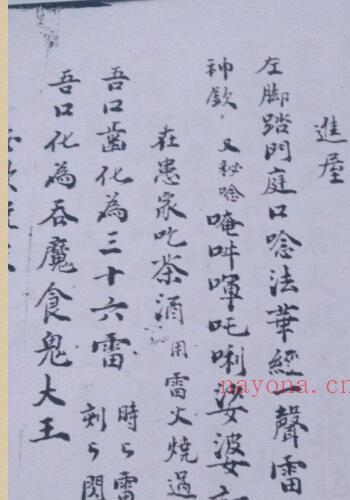 進屋
左脚踏門庭口唸法華經一聲雷
神欽，又秘唸唵吽㖶吒唎娑婆
在患家吃茶酒用雷火燒過
吾口齒化為三十六雷 時々雷
刻々閃
吾口化為吞魔食鬼大王
nayona.cn